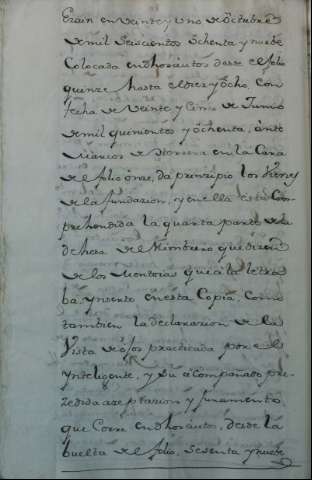 en veinte y uno de Octubre
de mil seiscientos ochenta y nuebe
Colocada en dhos autos desde el folio
quinze hasta el diez y ocho, con
fecha de veinte y Cinco de Junio
de mil quinientos y ochenta, ante
Marcos de en la Cara
de folio onze, da principio los Vienes
de la fundazion, y en ella esta Com
prehendida la quarta parte de la
dehesa de que dizen
de los que a la letra
ba ynserto en esta Copia, como
tambien la declarazion de la
Vista de ojos practicada por el
Ynteligente, y su acompañado pre-
zedida azeptazion y juramento,
que Corre en dhos autos, desde la
buelta del folio, sesenta y nuebe